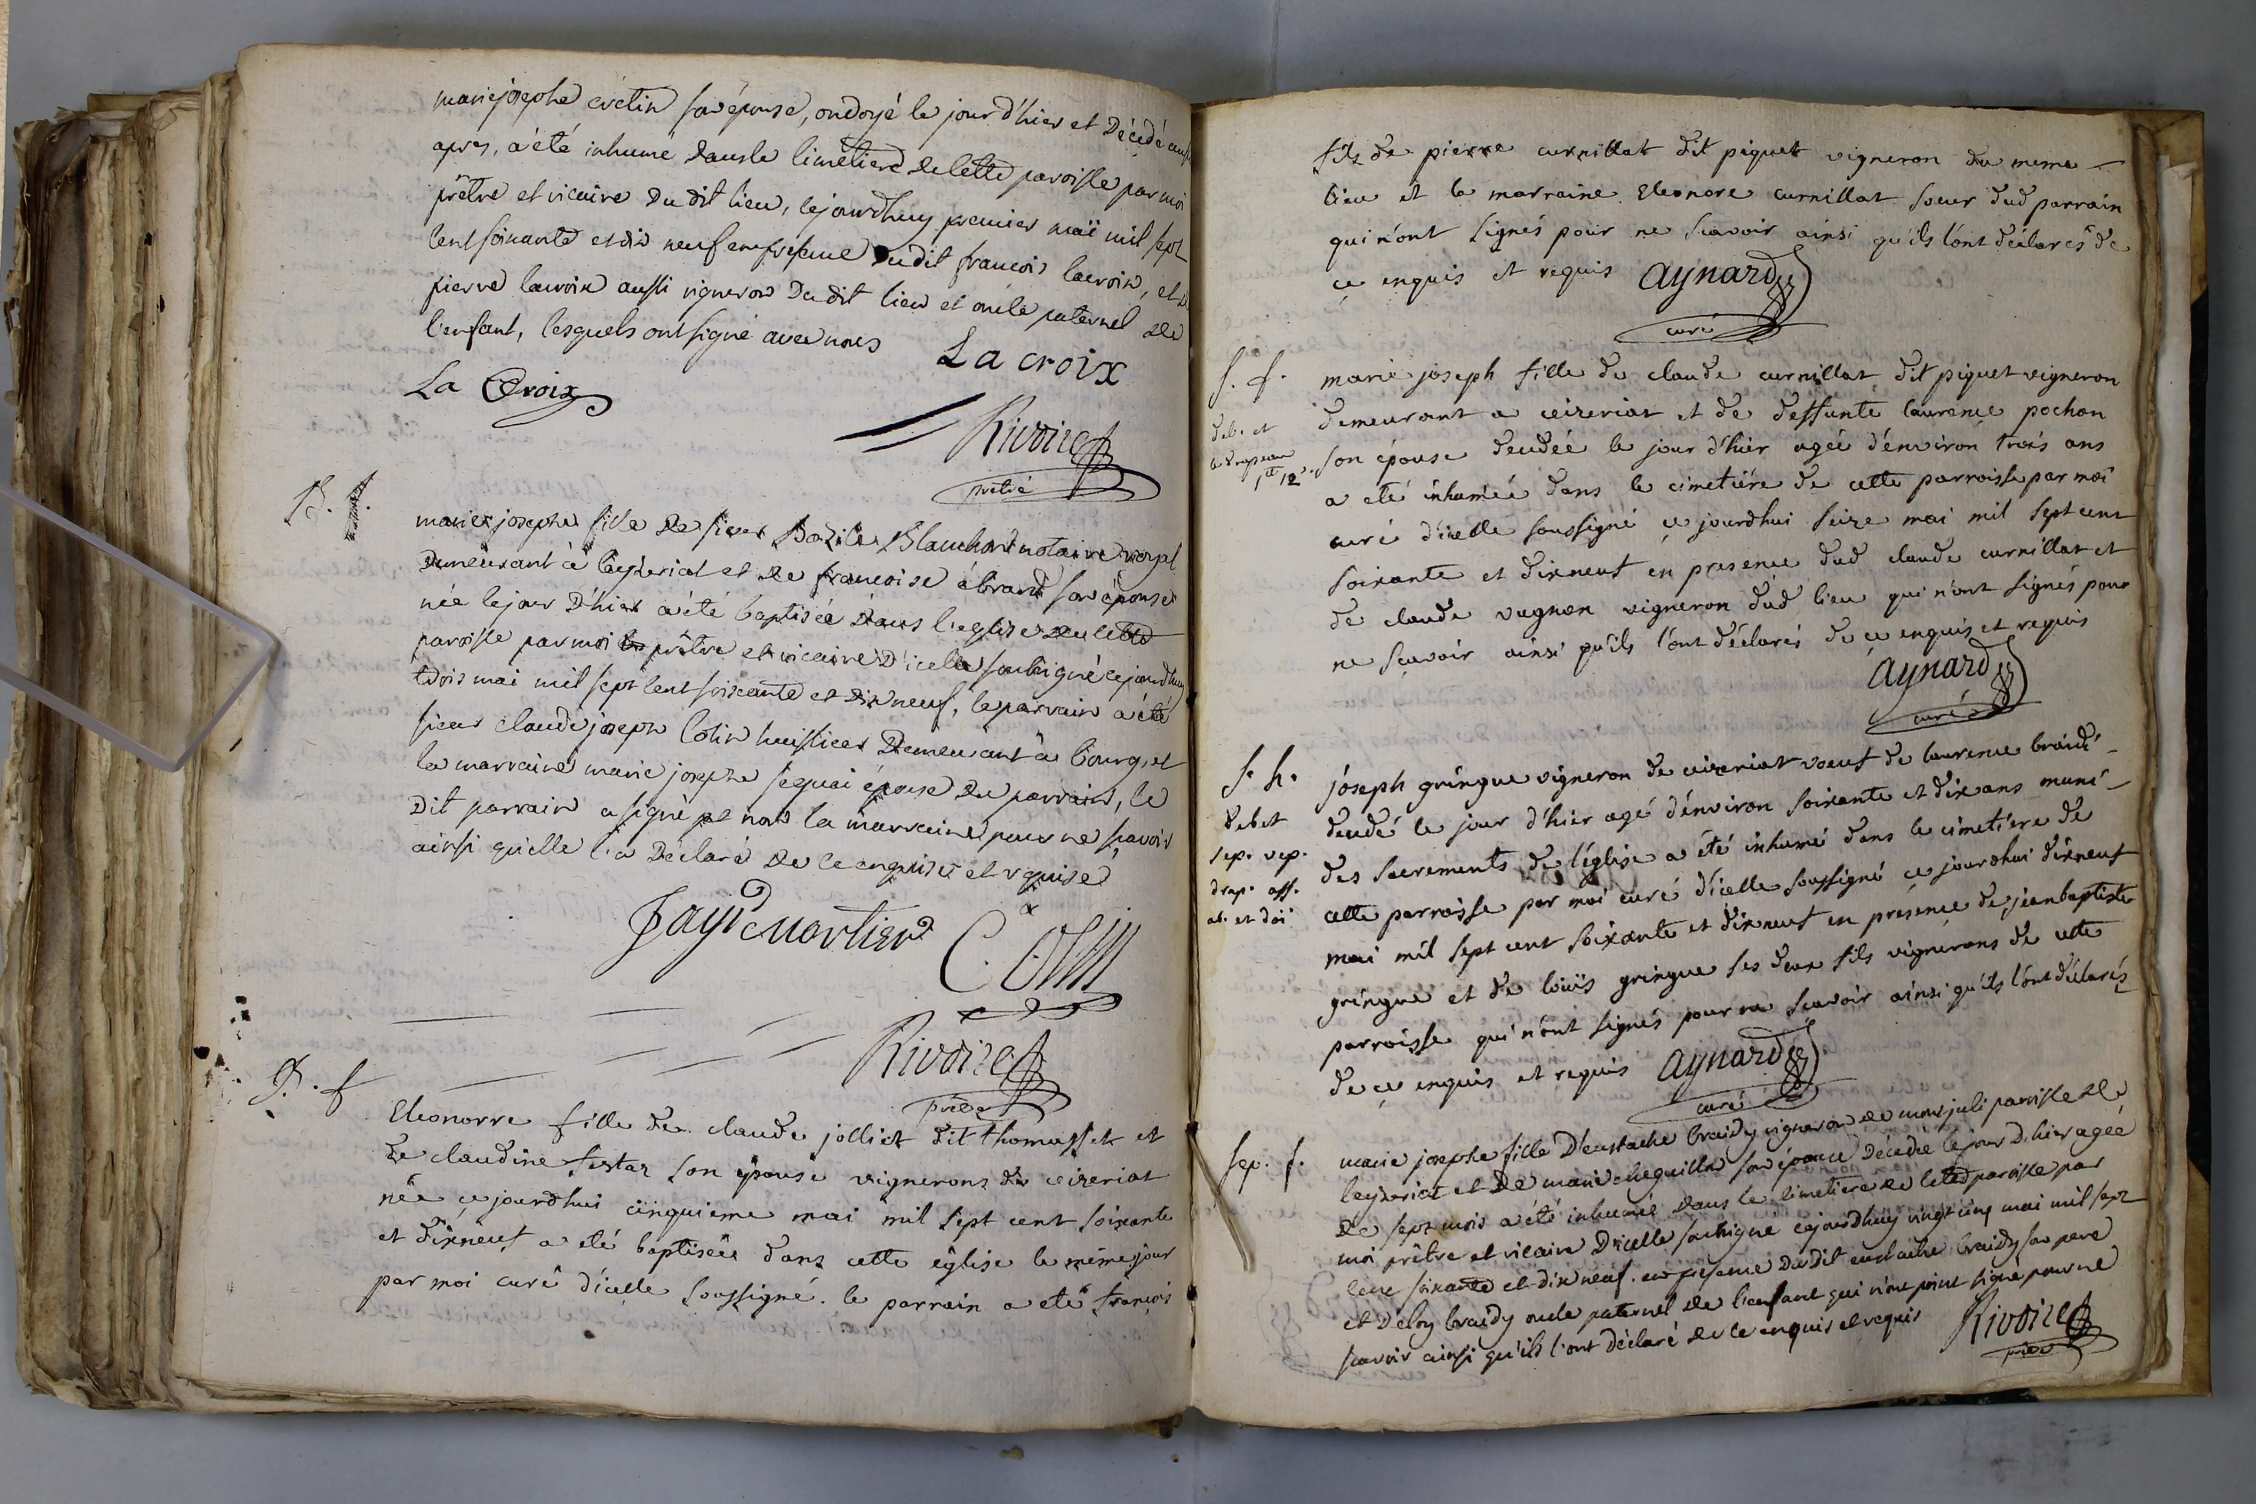 marie josephe évétin son épouse, ondoyé le jour d'hier et Décédé
apres, a été inhumé dans le Cimetiere de Cette paroisse par moi
prêtre et vicaire du dit lieu, cejourdhuy premier maï mil sept
Cent soixante et dix neuf en presence dudit francois lacroix, et de
pierre lacroix aussi vigneron du dit lieu et oncle paternel de
l'enfant, lesquels ont signé avec nous La croix
La Croix
Rivoire
prêtre
B. f.
marie josephe fille de sieur Bazile Blanchard notaire royal
demeurant à Ceyzeriat et de francoise ébrard son épouse
née le jour D'hier a été baptisée dans l'eglise de Cette
paroisse par moi prêtre et vicaire D'icelle soussigné cejourdhuy
trois mai mil sept Cent soixante et dix neuf, le parrain a été
sieur claude joseph Colin huissier Demeurant à bourg, et
la marraine marie josephe sequai épouse du parrain, le
Dit parrain a signé et non la marraine pour ne scavoir
ainsi qu'elle l'a Déclaré de Ce enquise et requise
Colin
Rivoire
prêtre
B. f
Eleonorre fille de claude jolliet dit thomasset et
de claudine sertaz son epouse vignerons de ceizeriat
née ce jourdhui cinquieme mai mil sept cent soixante
et dixneuf a eté baptisée dans cette église le même jour
par moi curé d'icelle soussigné. le parrain a eté françois
fils de pierre curnillat dit piquet vigneron du meme
lieu et la marraine Eleonore curnillat soeur dud parrain
qui n'ont signés pour ne scavoir ainsi qu'ils l'ont déclarés de
ce enquis et requis aynard
curé
s. f.
deb. et
marie joseph fille de claude curnillat dit piquet vigneron
demeurant a ceizeriat et de deffunte laurence pochon
son épouse decedée le jour d'hier agée d'environ trois ans
a eté inhumée dans le cimetiére de cette parroisse par moi
curé d'icelle soussigné ce jourdhui seize mai mil sept cent
soixante et dixneuf en presence dud claude curnillat et
de claude vugnon vigneron dud lieu qui n'ont signés pour
ne scavoir ainsi qu'ils l'ont déclarés de ce enquis et requis
aynard
curé
s. h.
debet
sep. vep.
drap. ass.
ab. et doi
joseph gringue vigneron de ceizeriat voeuf de laurence braidi
decedé le jour d'hier agé d'environ soixante et dix ans muni
des sacrements de l'église a été inhumé dans le cimetiere de
cette parroisse par moi curé d'icelle soussigné ce jourdhui dixneuf
mai mil sept cent soixante et dixneuf en presence de jeanbaptiste
gringue et de louis gringue ses deux fils vignerons de cette
parroisse qui n'ont signés pour ne scavoir ainsi qu'ils l'ont déclarés
de ce enquis et requis aynard
curé
sep. f.
marie josephe fille D'eustache braidy vigneron de montjuli paroisse de
Ceyzeriat et de marie cheguillon son épouse Décédée le jour D'hier agée
de sept mois a été inhumée dans le Cimetiere de Cette paroisse par
moi prêtre et vicaire D'icelle soussigné cejourdhuy vingt cinq mai mil sept
Cent soixante et dix neuf en presence dudit eustache braidy son pere
et D'eloy braidy oncle paternel de l'enfant qui n'ont point signé pour ne
scavoir ainsi qu'ils l'ont déclaré de Ce enquis et requis Rivoire
prêtre